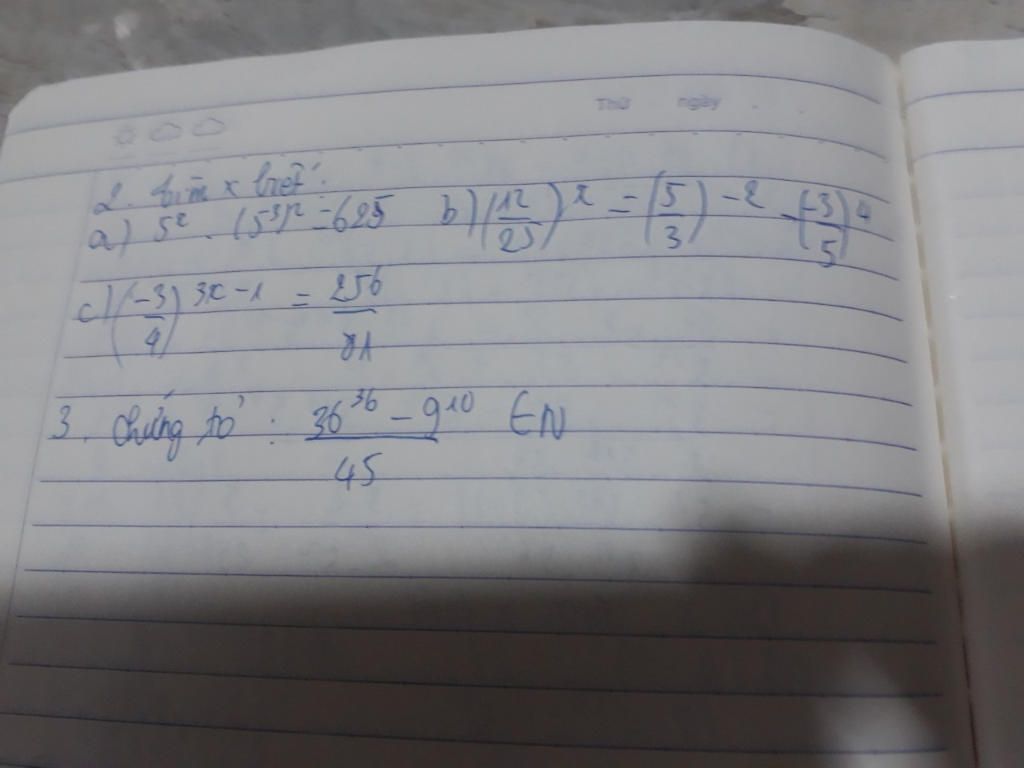 Thứ ngày
2. tìm x biết:
a) 5^x . (5^3)^2 = 625 b) (12/25)^x = (5/3)^-2 - (-3/5)^4
c) (-3/4)^3x-1 = 256/81
3. chứng tỏ : 36^36 - 9^10 / 45 ∈ N